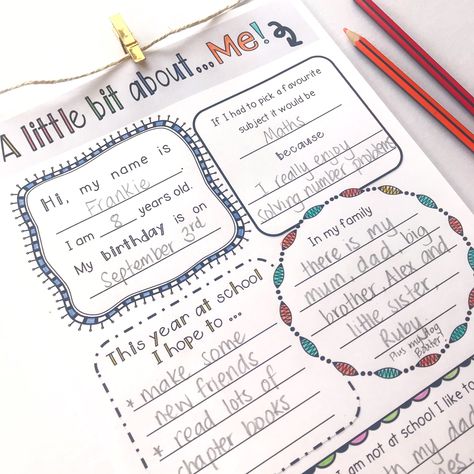 A little bit about...Me!
Hi, my name is
Frankie
I am 8 years old.
My birthday is on
September 3rd
If I had to pick a favourite
subject it would be
Maths
because
I really enjoy
solving number problems
In my family
there is my
mum, dad, big
brother, Alex and
little sister,
Ruby
Plus my dog
Baxter!
This year at school
I hope to ...
* make some
new friends
* read lots of
chapter books
am not at school I like to
my dad